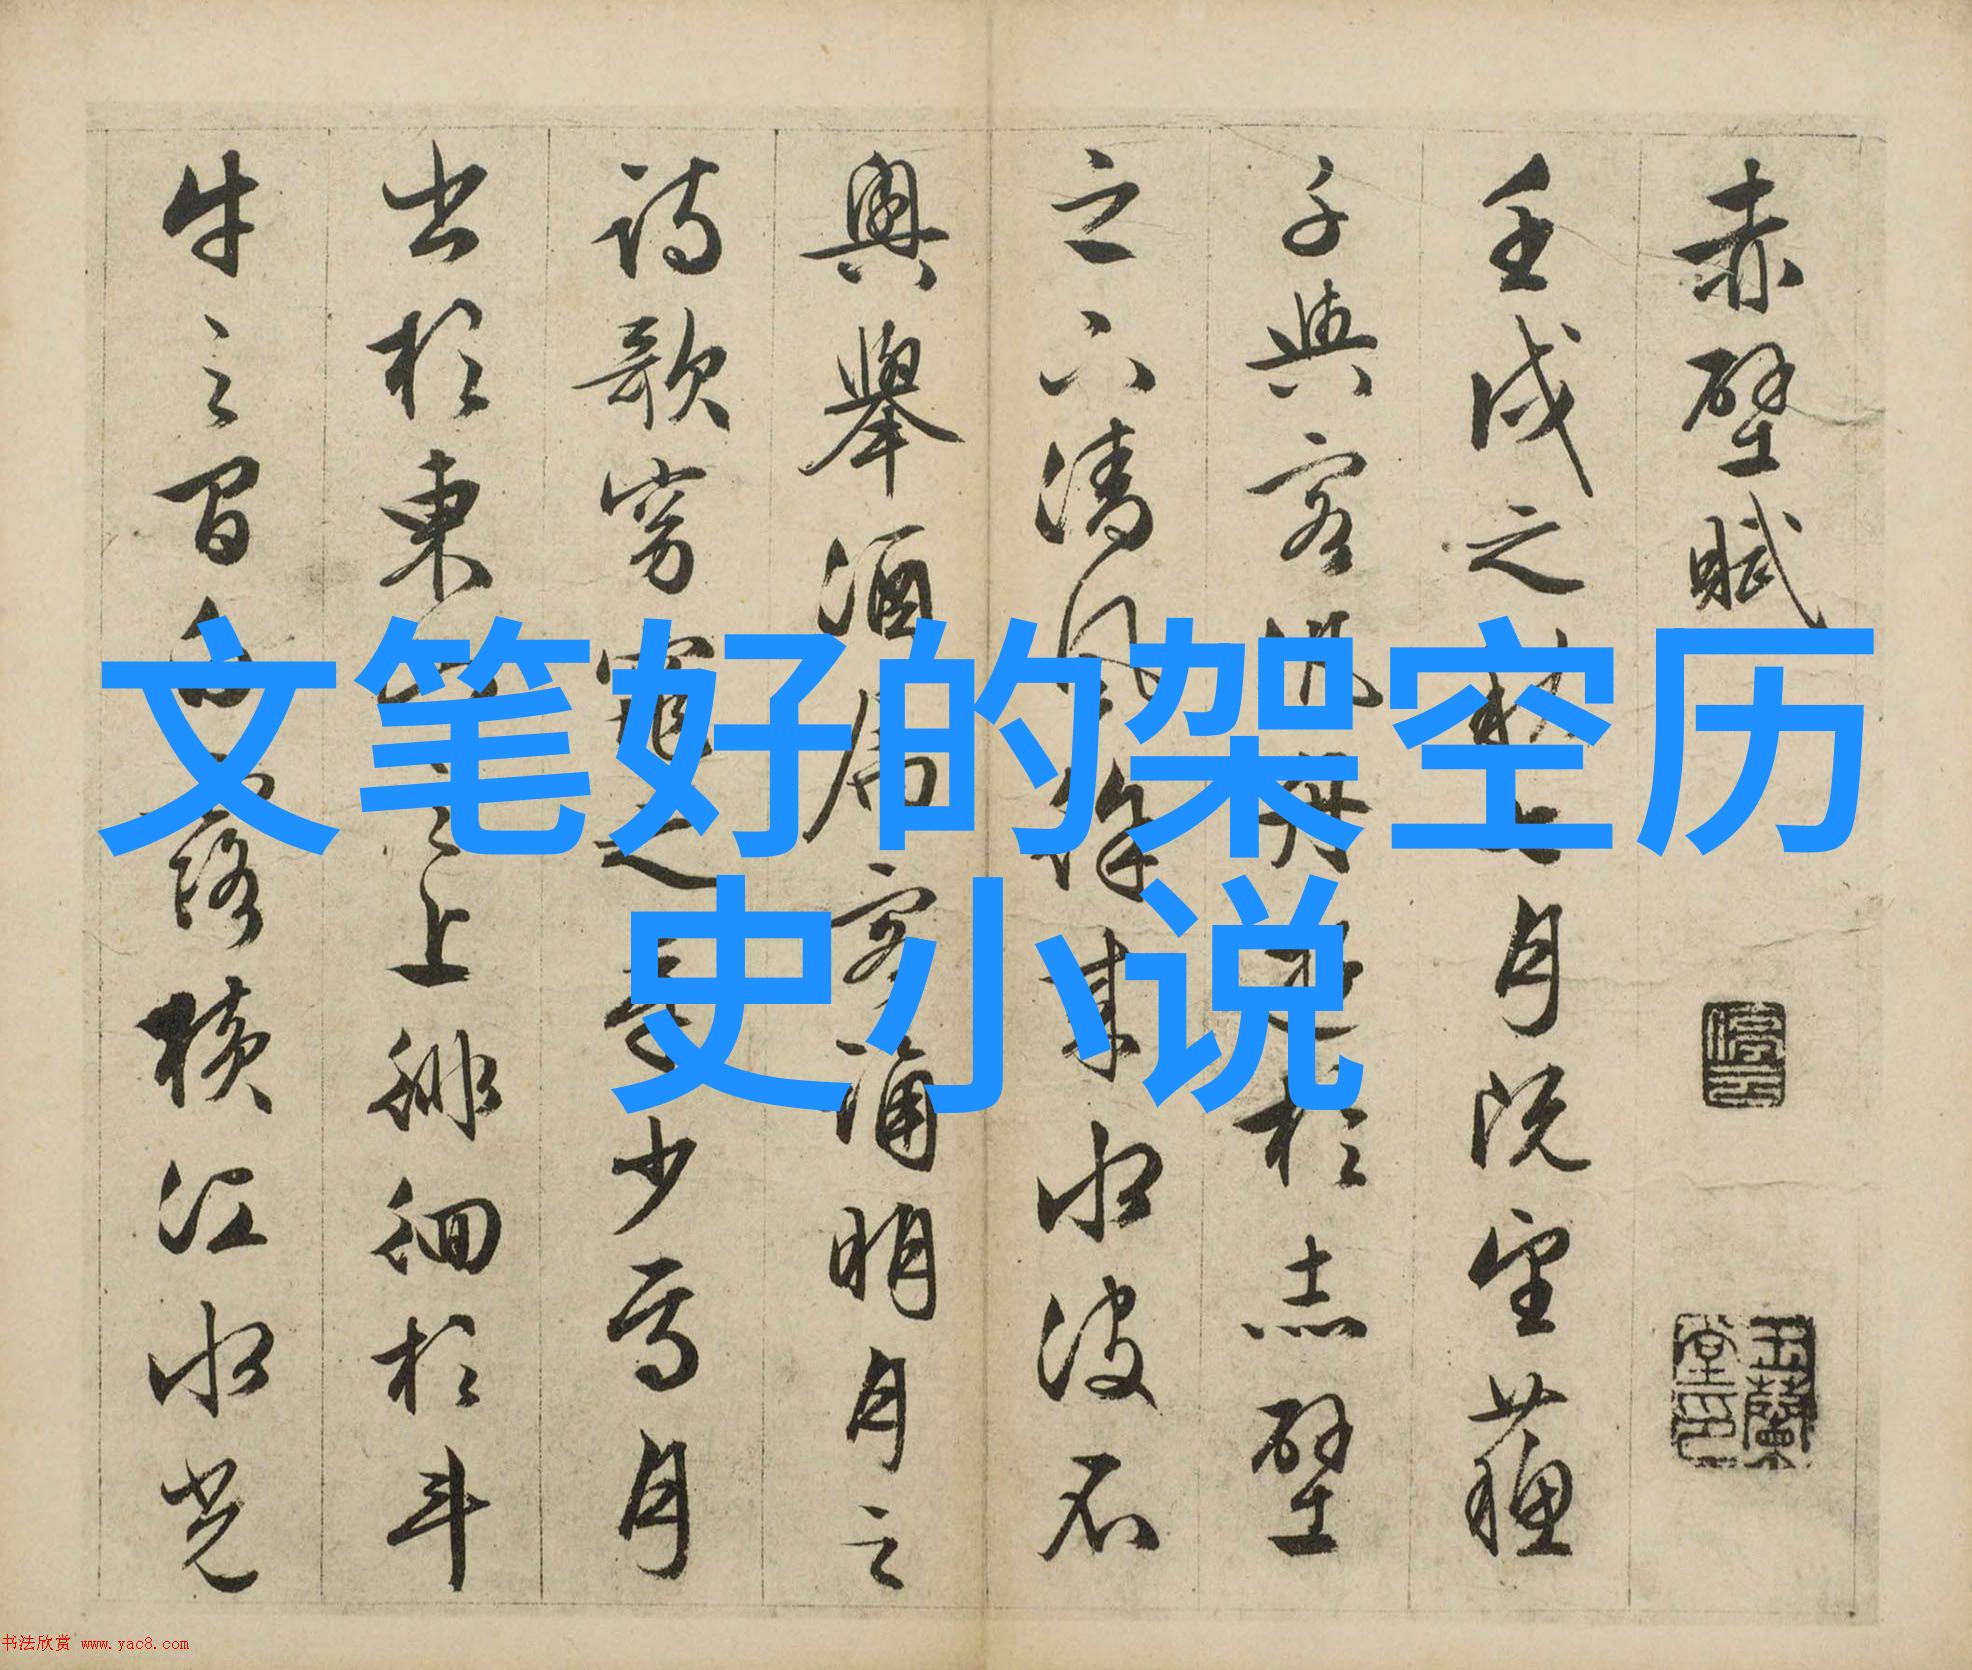 文笔好的架空历
史小说
赤壁賦
停雲
玉蘭堂印
壬戌之秋七月既望蘇
子與客汎舟遊於赤壁
之下清風徐来水波不
興舉酒屬客誦明月之
詩歌窈窕之章少焉月
出於東山之上徘徊於斗
牛之間白露橫江水光
书法欣赏 www.yac8.com